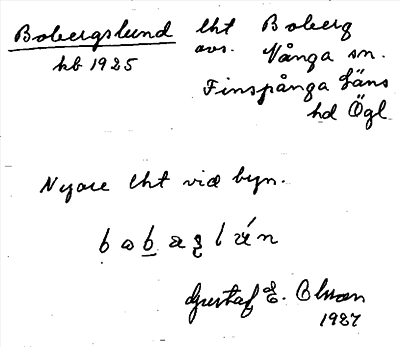 Bobergslund lht Boberg
kb 1925 avs. Vånga sn.
Finspånga läns
hd Ögl
Nyare lht vid byn.
Gustaf E. Olsson
1927